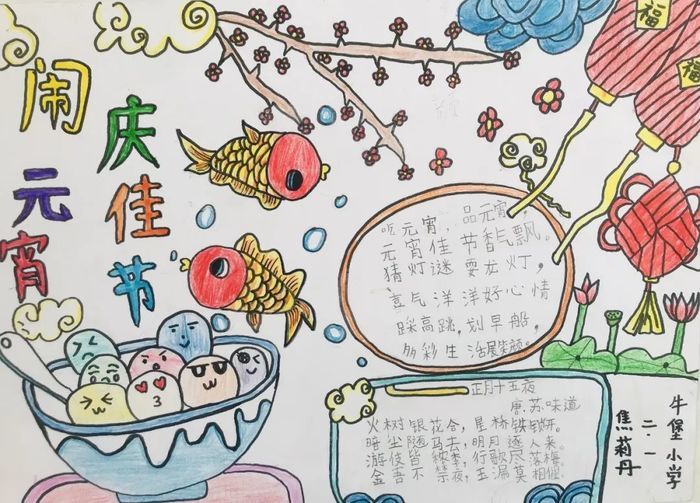 闹元宵
庆佳节
福
福
吃元宵，品元宵，
元宵佳节香气飘。
猜灯谜 耍龙灯，
气洋洋好心情
踩高跳，划早船，
多彩生活展笑颜。
正月十五夜
唐.苏味道
火树银花合，星桥铁锁。
暗尘随马去，明月逐人来。
游伎皆秾李，行歌尽落梅。
金吾不禁夜，玉漏莫相催。
牛堡小学
二.一
焦莉丹